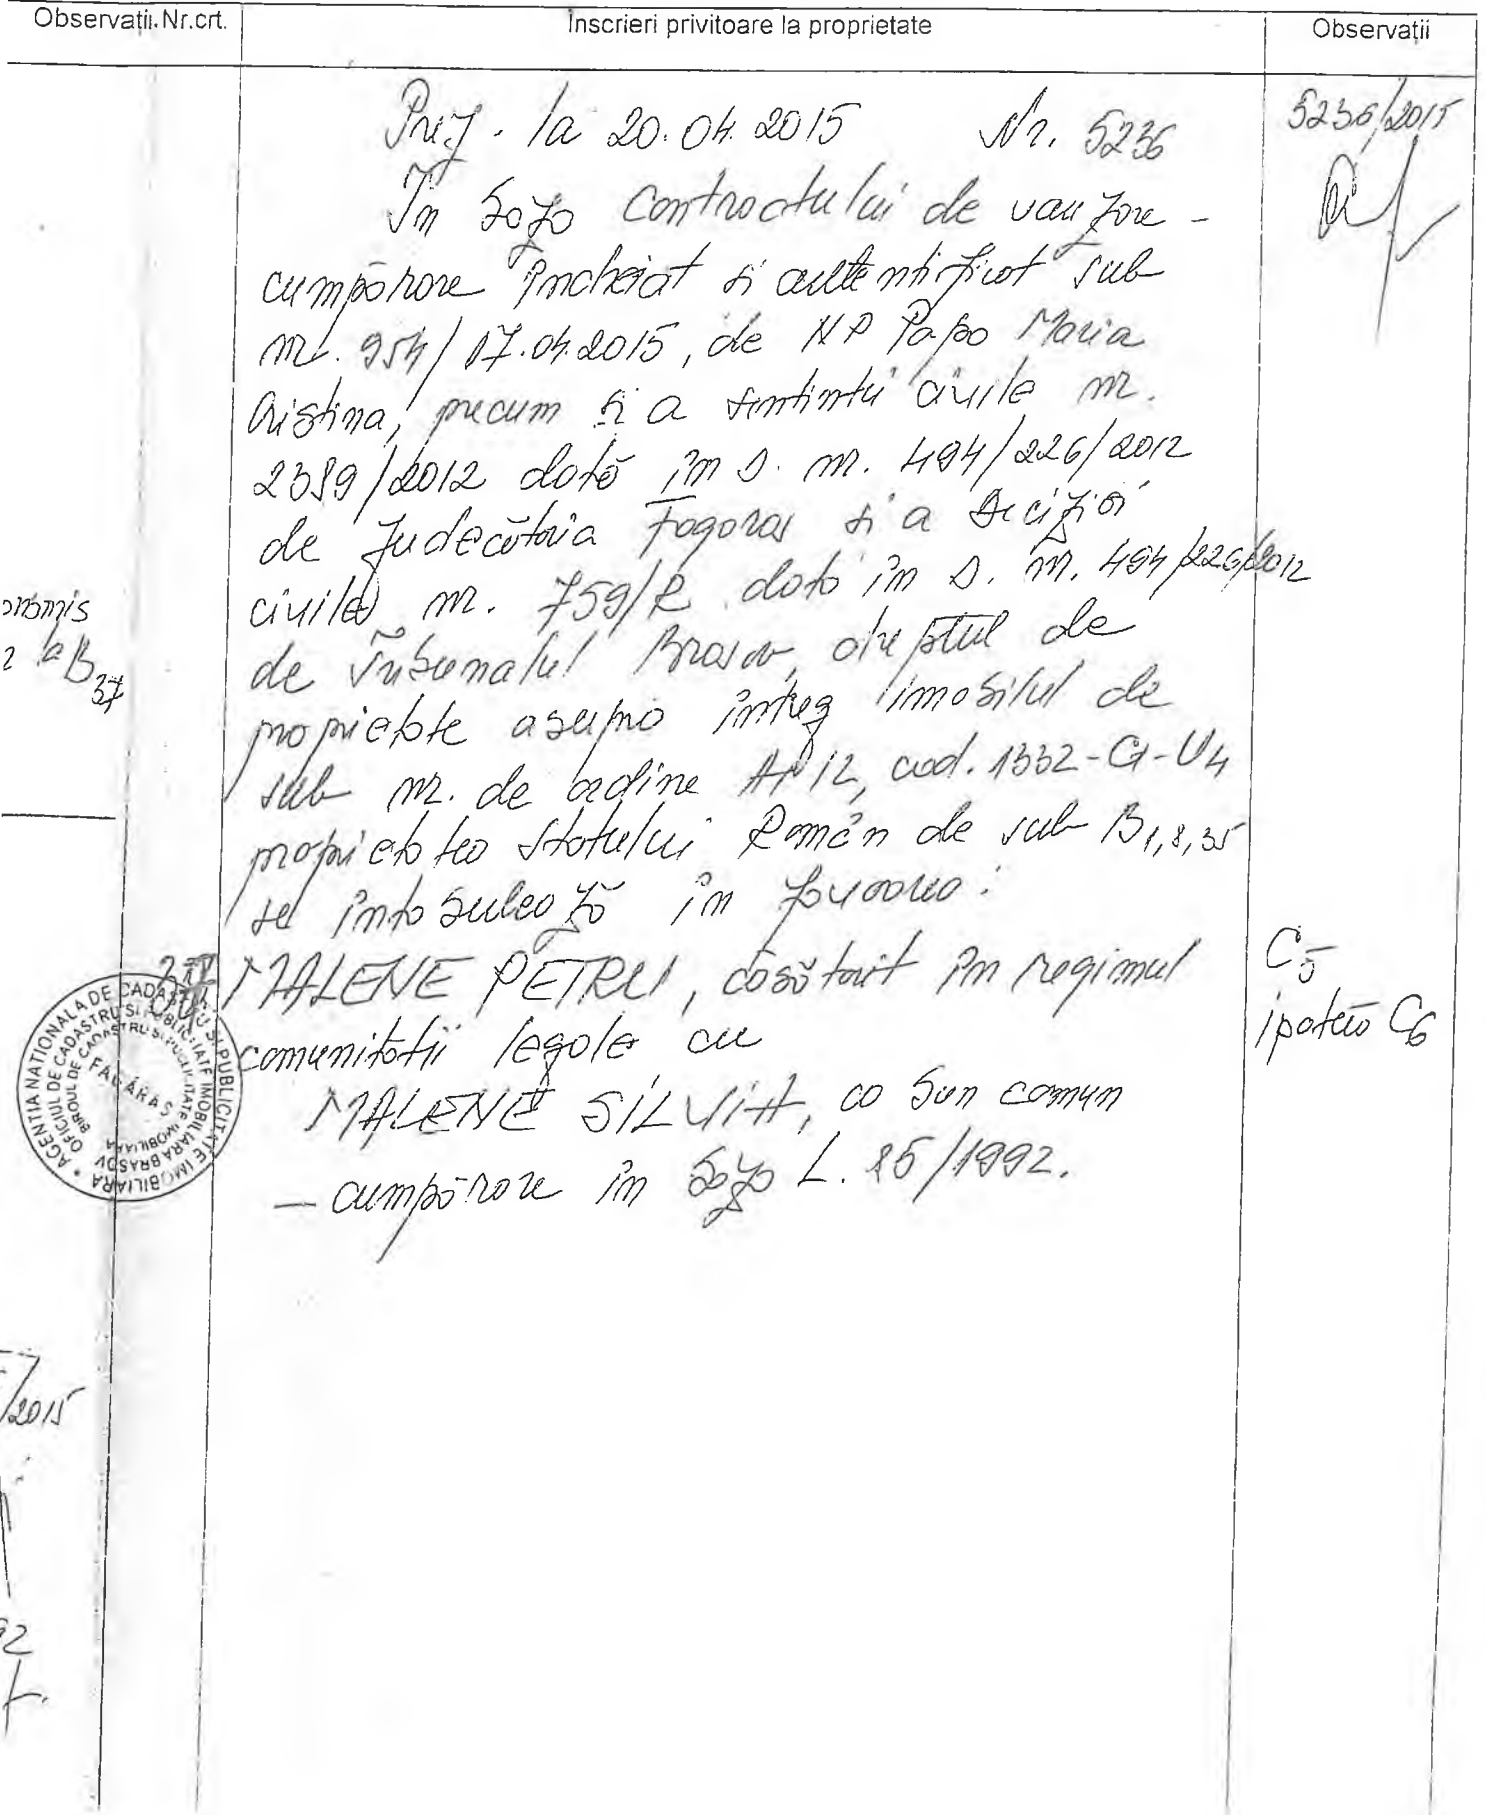 Observații. Nr.crt. Inscrieri privitoare la proprietate Observații
Prez. la 20.04.2015 Nr. 5236 5236/2015
În baza contractului de vanzare -
cumpărare încheiat si autentificat sub
nr. 954/17.04.2015, de NP Papo Maria
Cristina, precum si a sentintei civile nr.
2389/2012 dată în D. nr. 494/226/2012
de Judecătoria Fagaras si a deciziei
civile nr. 759/R dată în D. nr. 494/226/2012
de Tribunalul Brasov, dreptul de
proprietate asupra întreg imobilul de
sub nr. de ordine A+12, cod. 1332-C1-U4
proprietatea Statului Român de sub B1,8,35
se intabulează în favoarea:
MALENE PETRU, căsătorit în regimul
comunitatii legale cu
MALENE SILVIA, ca bun comun
— cumpărare în baza L. 85/1992.
C5
ipoteca C6
la B37
/2015
AGENTIA NATIONALA DE CADASTRU SI PUBLICITATE IMOBILIARA
OFICIUL DE CADASTRU SI PUBLICITATE IMOBILIARA BRASOV
BIROUL DE CADASTRU SI PUBLICITATE IMOBILIARA
FAGARAS